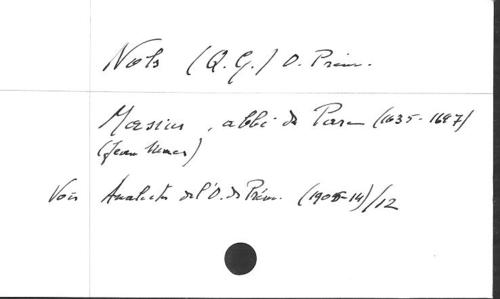 Nols (Q. G.) O. Prém.
Masius, abbé de Parc (1635-1647)
(Jean
Voir Analectes de l'O. de Prém. (1905-14)/12